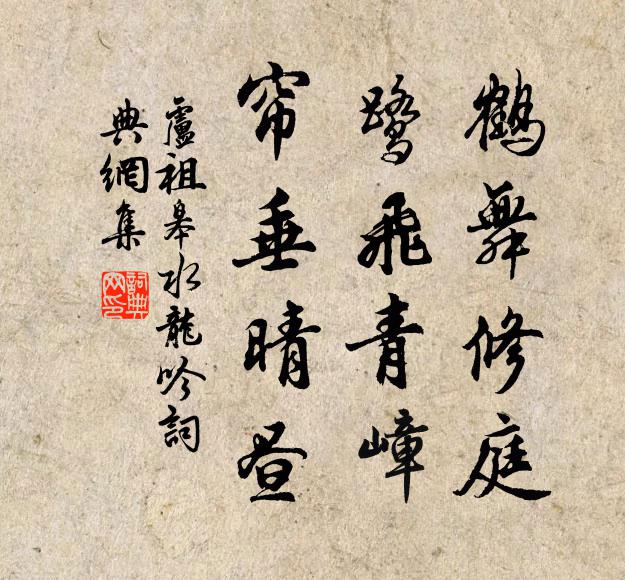 鶴舞修庭
鷺飛青嶂
帘垂晴昼
盧祖皋水龍吟詞
典網集
詞典
网印